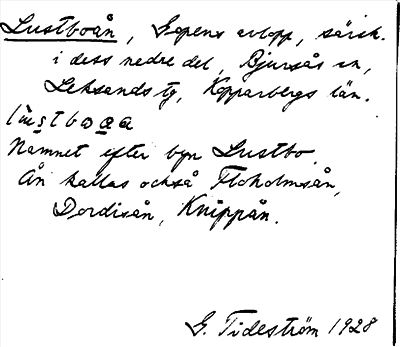 Lustboån, Gopens avlopp, särsk.
i dess nedre del, Bjursås sn,
Leksands tg, Kopparbergs län.
Namnet efter byn Lustbo.
Ån kallas också Floholmsån,
Dordisån, Knippån.
G. Tideström 1928